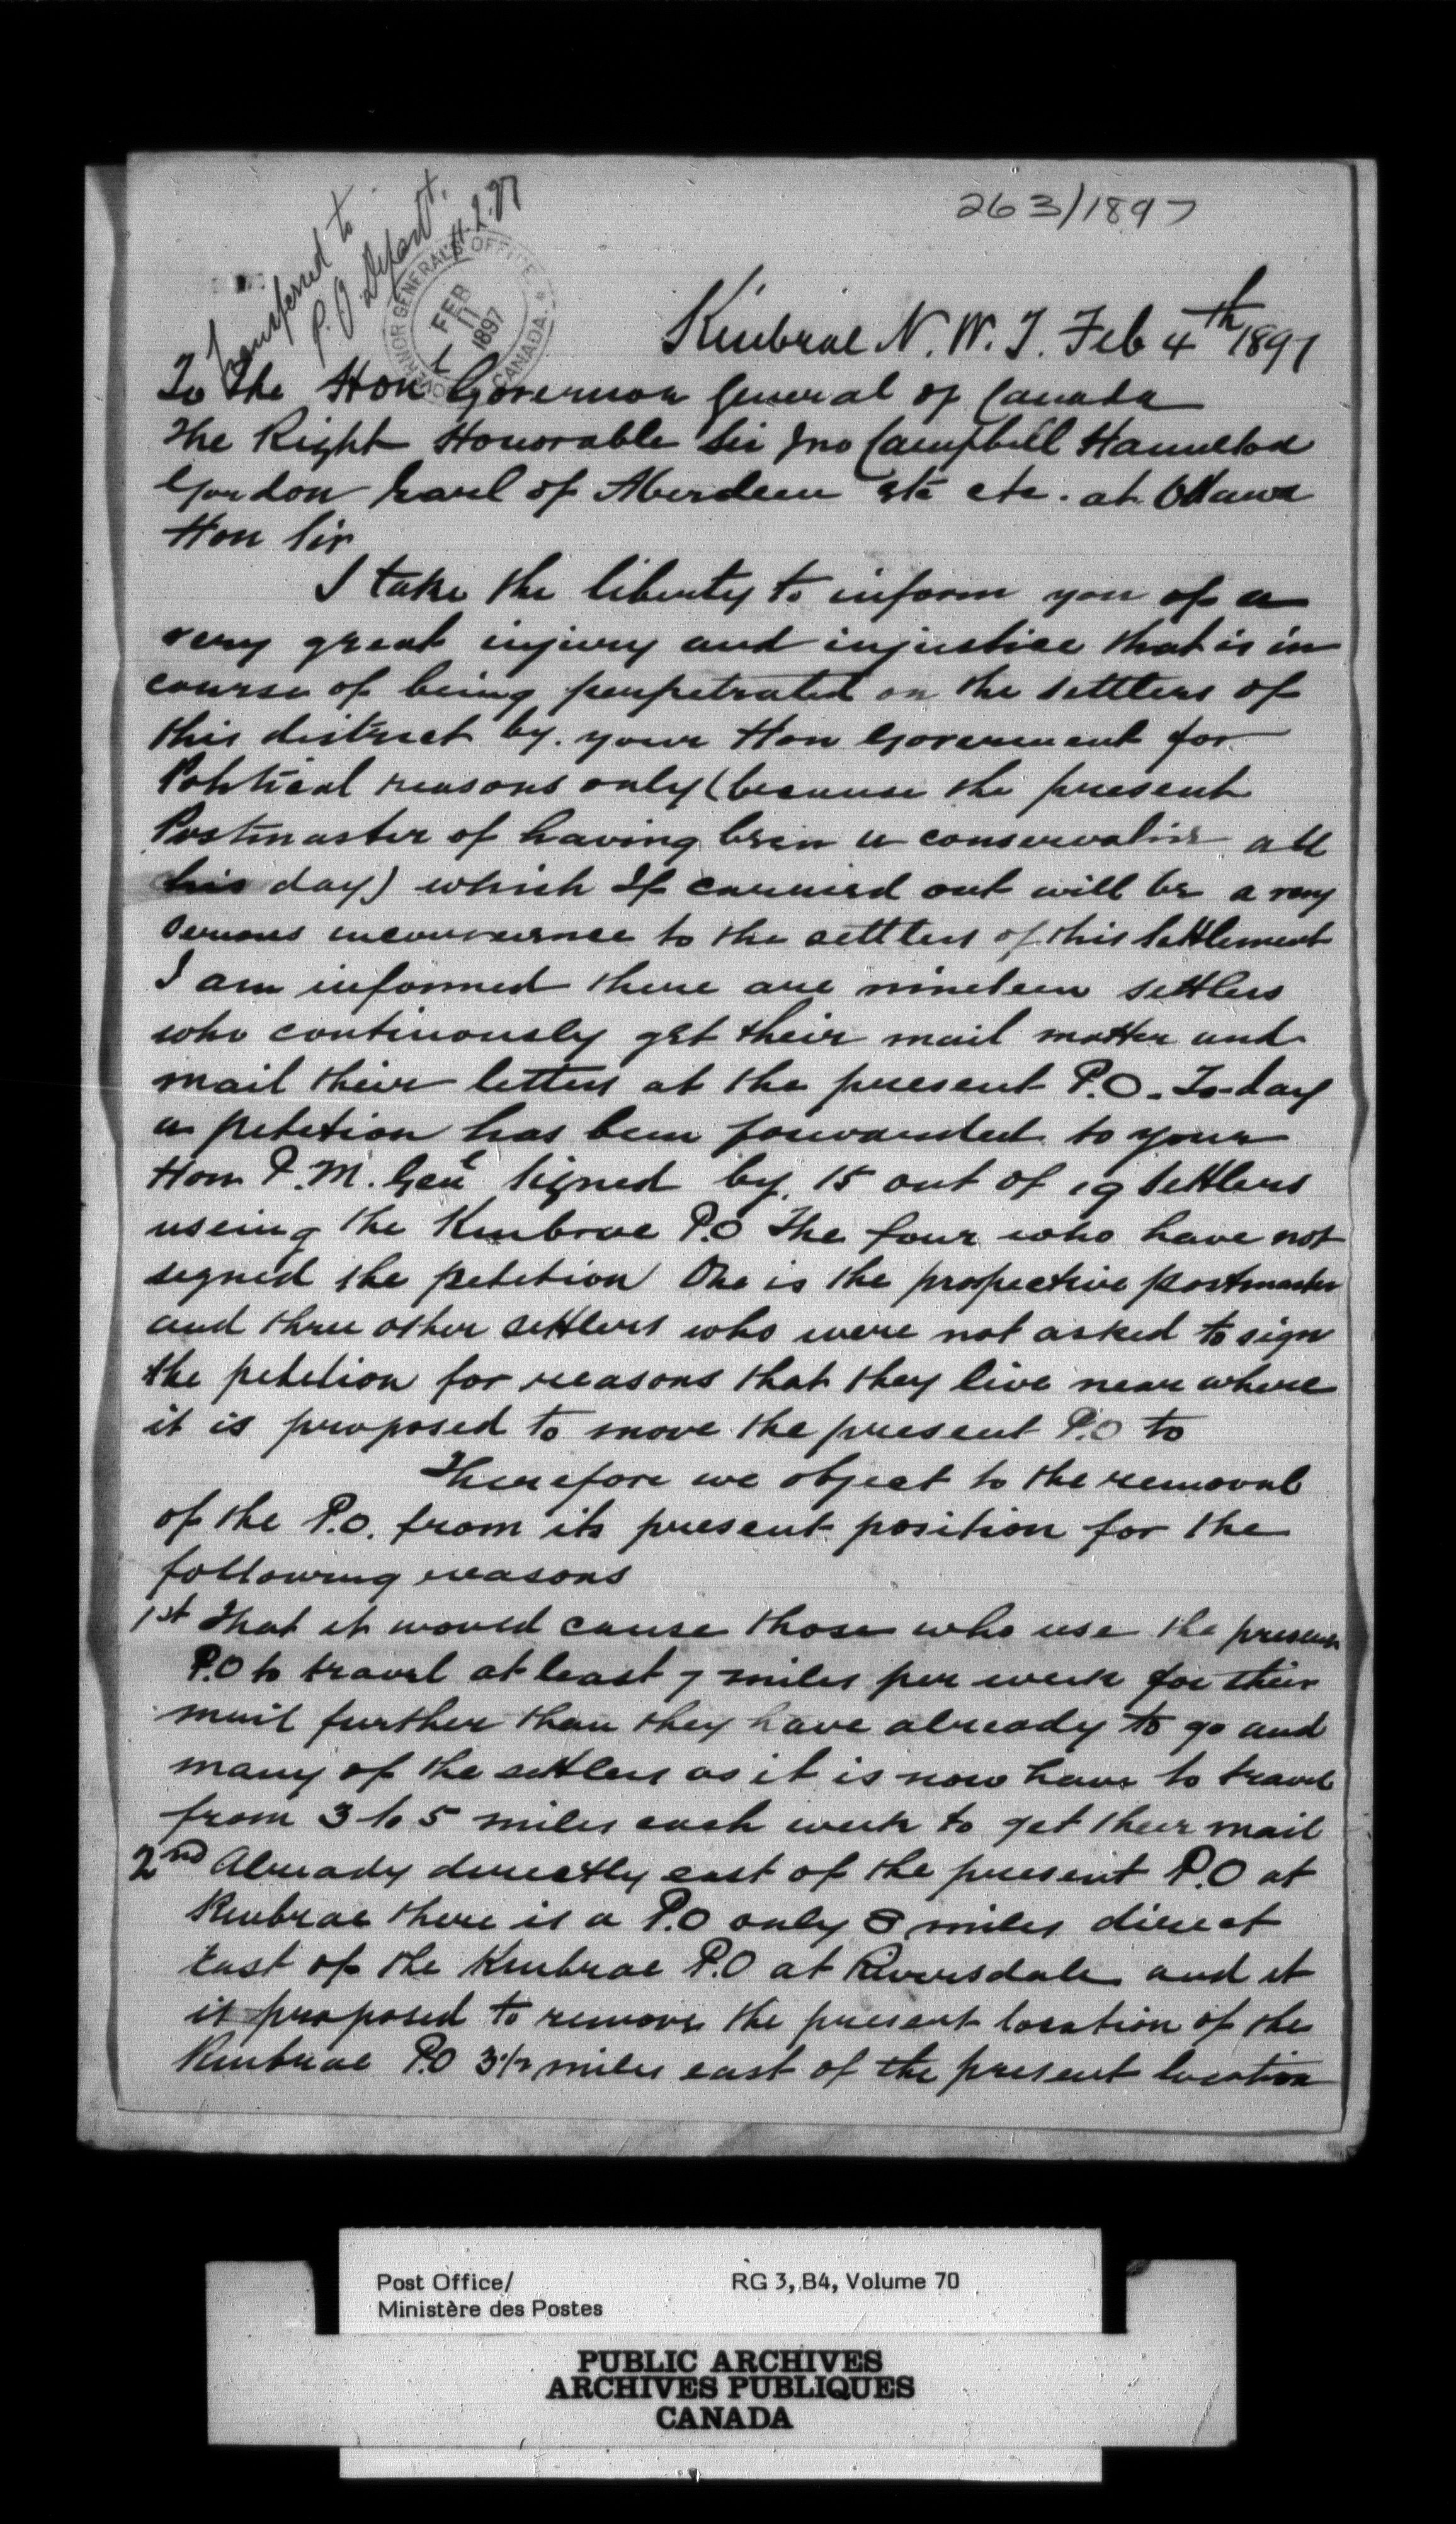 263/1897
Transferred to
P.O Depart.
11.2.97
GOVERNOR GENERAL'S OFFICE
FEB
11
1897
CANADA
Kinbrae N.W.T. Feb 4th 1897
To The Hon Governor General of Canada
The Right Honorable Sir Jno Campbell Hamelton
Gordon Earl of Aberdeen etc etc. at Ottawa
Hon Sir
I take the liberty to inform you of a
very great injury and injustice that is in
course of being perpetrated on the settlers of
this district by your Hon Goverement for
Political reasons only (because the present
Postmaster of having been a conservative all
his day) which If carried out will be a very
serious inconvenience to the settlers of this Settlement
I am informed there are nineteen settlers
who continuously get their mail matter and
mail their letters at the present P.O. To-day
a petetion has been forwarded to your
Hon P.M. Genl signed by 15 out of 19 settlers
useing the Kinbrae P.O The four who have not
segned the petetion One is the prospective postmaster
and three other settlers who were not asked to sign
the petetion for reasons that they live near where
it is proposed to move the present P.O to
Therefore we object to the removal
of the P.O. from its present position for the
following reasons
1st That it would cause those who use the present
P.O to travel at least 7 miles per week for their
mail further than they have already to go and
many of the settlers as it is now have to travel
from 3 to 5 miles each week to get their mail
2nd Already directly east of the present P.O at
Kinbrae there is a P.O only 8 miles direct
East of the Kinbrae P.O at Riversdale and it
is proposed to remove the present location of the
Kinbrae P.O 3½ miles east of the present location
Post Office/
Ministère des Postes
RG 3, B4, Volume 70
PUBLIC ARCHIVES
ARCHIVES PUBLIQUES
CANADA